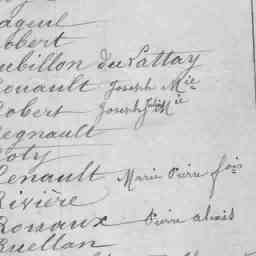 ageul
obert
ubillon du Lattay
enault Joseph Mie
obert Joseph Mie
egnault
oty
enault Marie Pierre fois
Rivière
Rouaux Pierre alexis
Ruellan